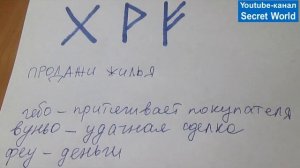 Youtube-канал
Secret World
ᚷ ᚹ ᚠ
ПРОДАЖИ ЖИЛЬЯ
гебо – притягивает покупателя
вуньо – удачная сделка
феу – деньги